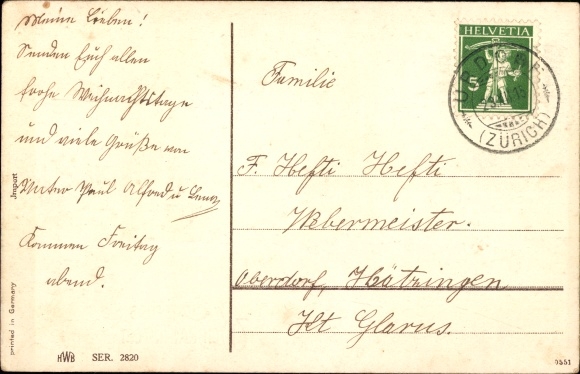 Meine Lieben!
Senden Euch allen
frohe Weihnachtstage
und viele Grüße von
Mutter Paul Alfred u
Kommen Freitag
abend.
Familie
F. Hefti Hefti
Webermeister.
Oberdorf, Hätzingen
Kt Glarus.
HELVETIA
5
(ZÜRICH)
Import
printed in Germany
HWB SER. 2820
0551